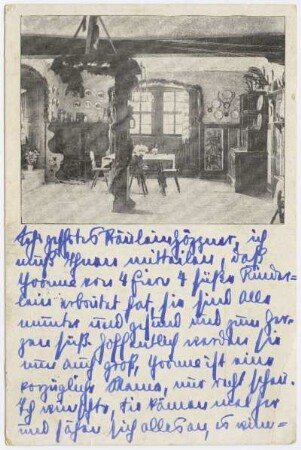 Sehr geehrtes Fräulein Höppner, ich
muß Ihnen mitteilen, daß
Yvonne von 4 Eiern 4 süße Kinder-
lein erbrütet hat, sie sind alle
munter und gesund und zum Her-
zen süß, hoffentlich werden sie
nun auch groß, Yvonne ist eine
vorzügliche Mama, nur recht scheu.
Ich wünschte, Sie kämen mal her
und sähen sich alles an, es